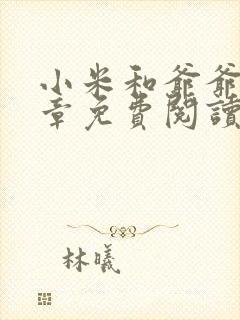 小米和爺爺
章免費閱讀
林曦